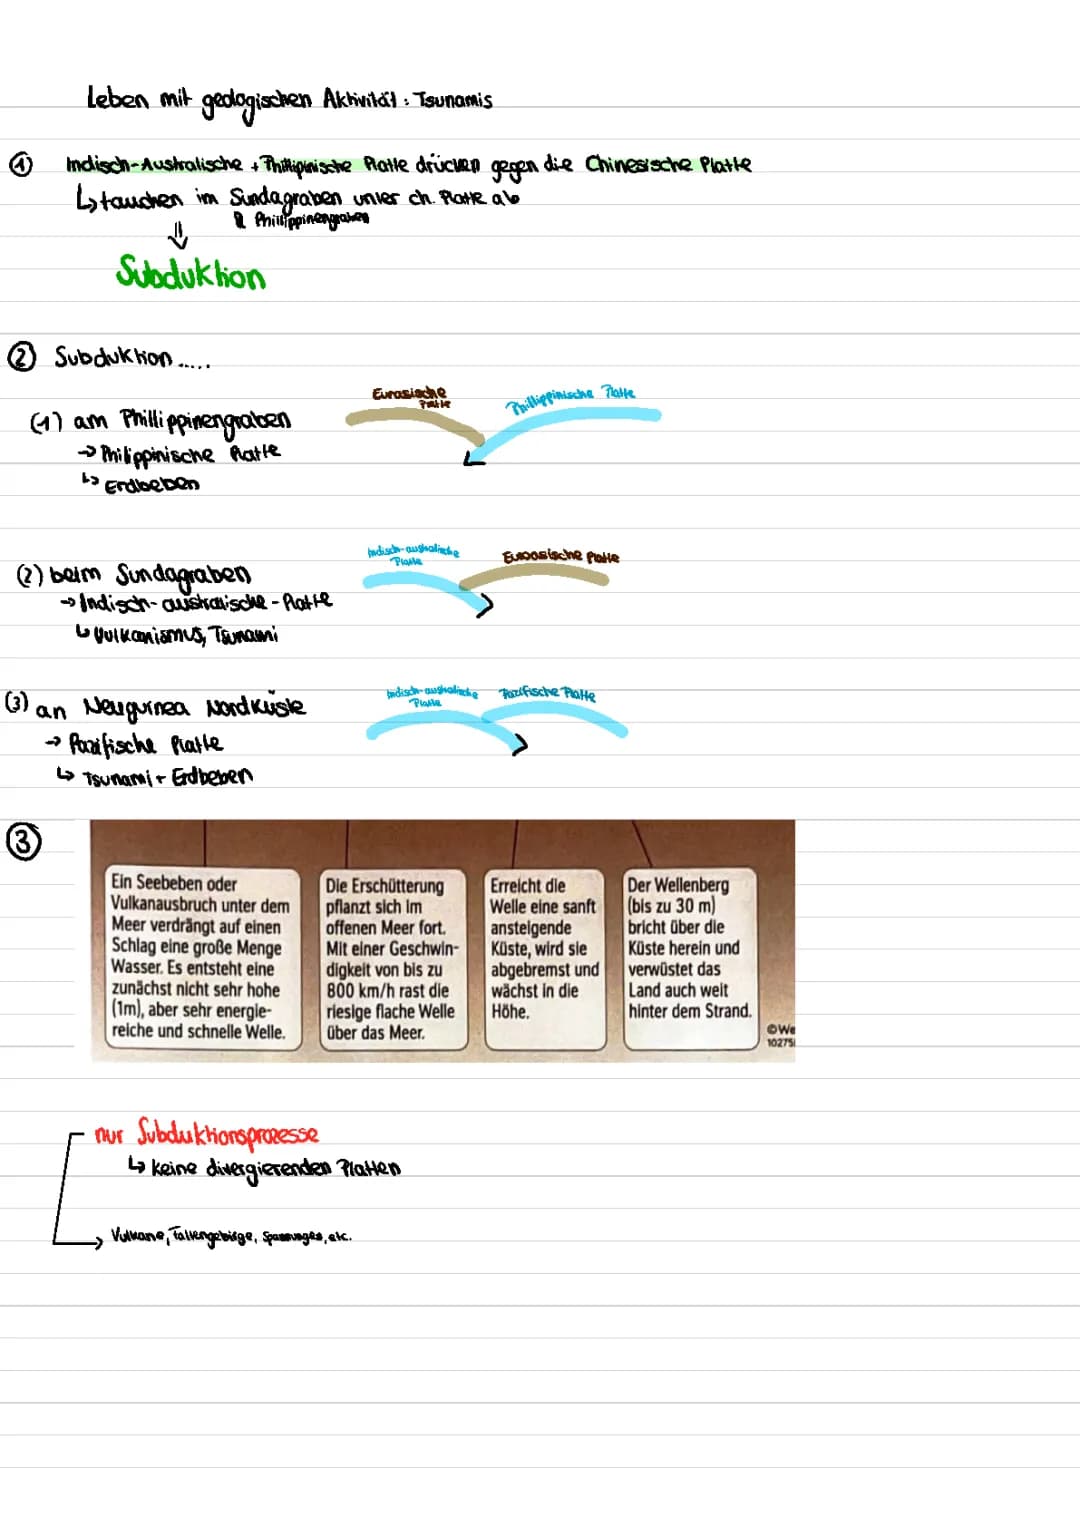 Leben mit geologischen Aktivität: Tsunamis
① Indisch-Australische + Phillipinische Platte drücken gegen die Chinesische Platte
↳ tauchen im Sundagraben unter ch. Platte ab
& Phillippinengraben
⇓
Subduktion
② Subduktion.....
(1) am Phillippinengraben
→ Philippinische Platte
↳ Erdbeben
Eurasische Platte
Phillippinische Platte
(2) beim Sundagraben
→ Indisch-australische-Platte
↳ Vulkanismus, Tsunami
Indisch-australische Platte
Euroasische Platte
(3) an Neuguinea Nordküste
→ Pazifische Platte
↳ Tsunami + Erdbeben
Indisch-australische Platte
Pazifische Platte
③
Ein Seebeben oder
Vulkanausbruch unter dem
Meer verdrängt auf einen
Schlag eine große Menge
Wasser. Es entsteht eine
zunächst nicht sehr hohe
(1m), aber sehr energie-
reiche und schnelle Welle.
Die Erschütterung
pflanzt sich im
offenen Meer fort.
Mit einer Geschwin-
digkeit von bis zu
800 km/h rast die
riesige flache Welle
über das Meer.
Erreicht die
Welle eine sanft
ansteigende
Küste, wird sie
abgebremst und
wächst in die
Höhe.
Der Wellenberg
(bis zu 30 m)
bricht über die
Küste herein und
verwüstet das
Land auch weit
hinter dem Strand.
©We
10275
nur Subduktionsprozesse
↳ keine divergierenden Platten
→ Vulkane, Faltengebirge, Spannungen, etc.